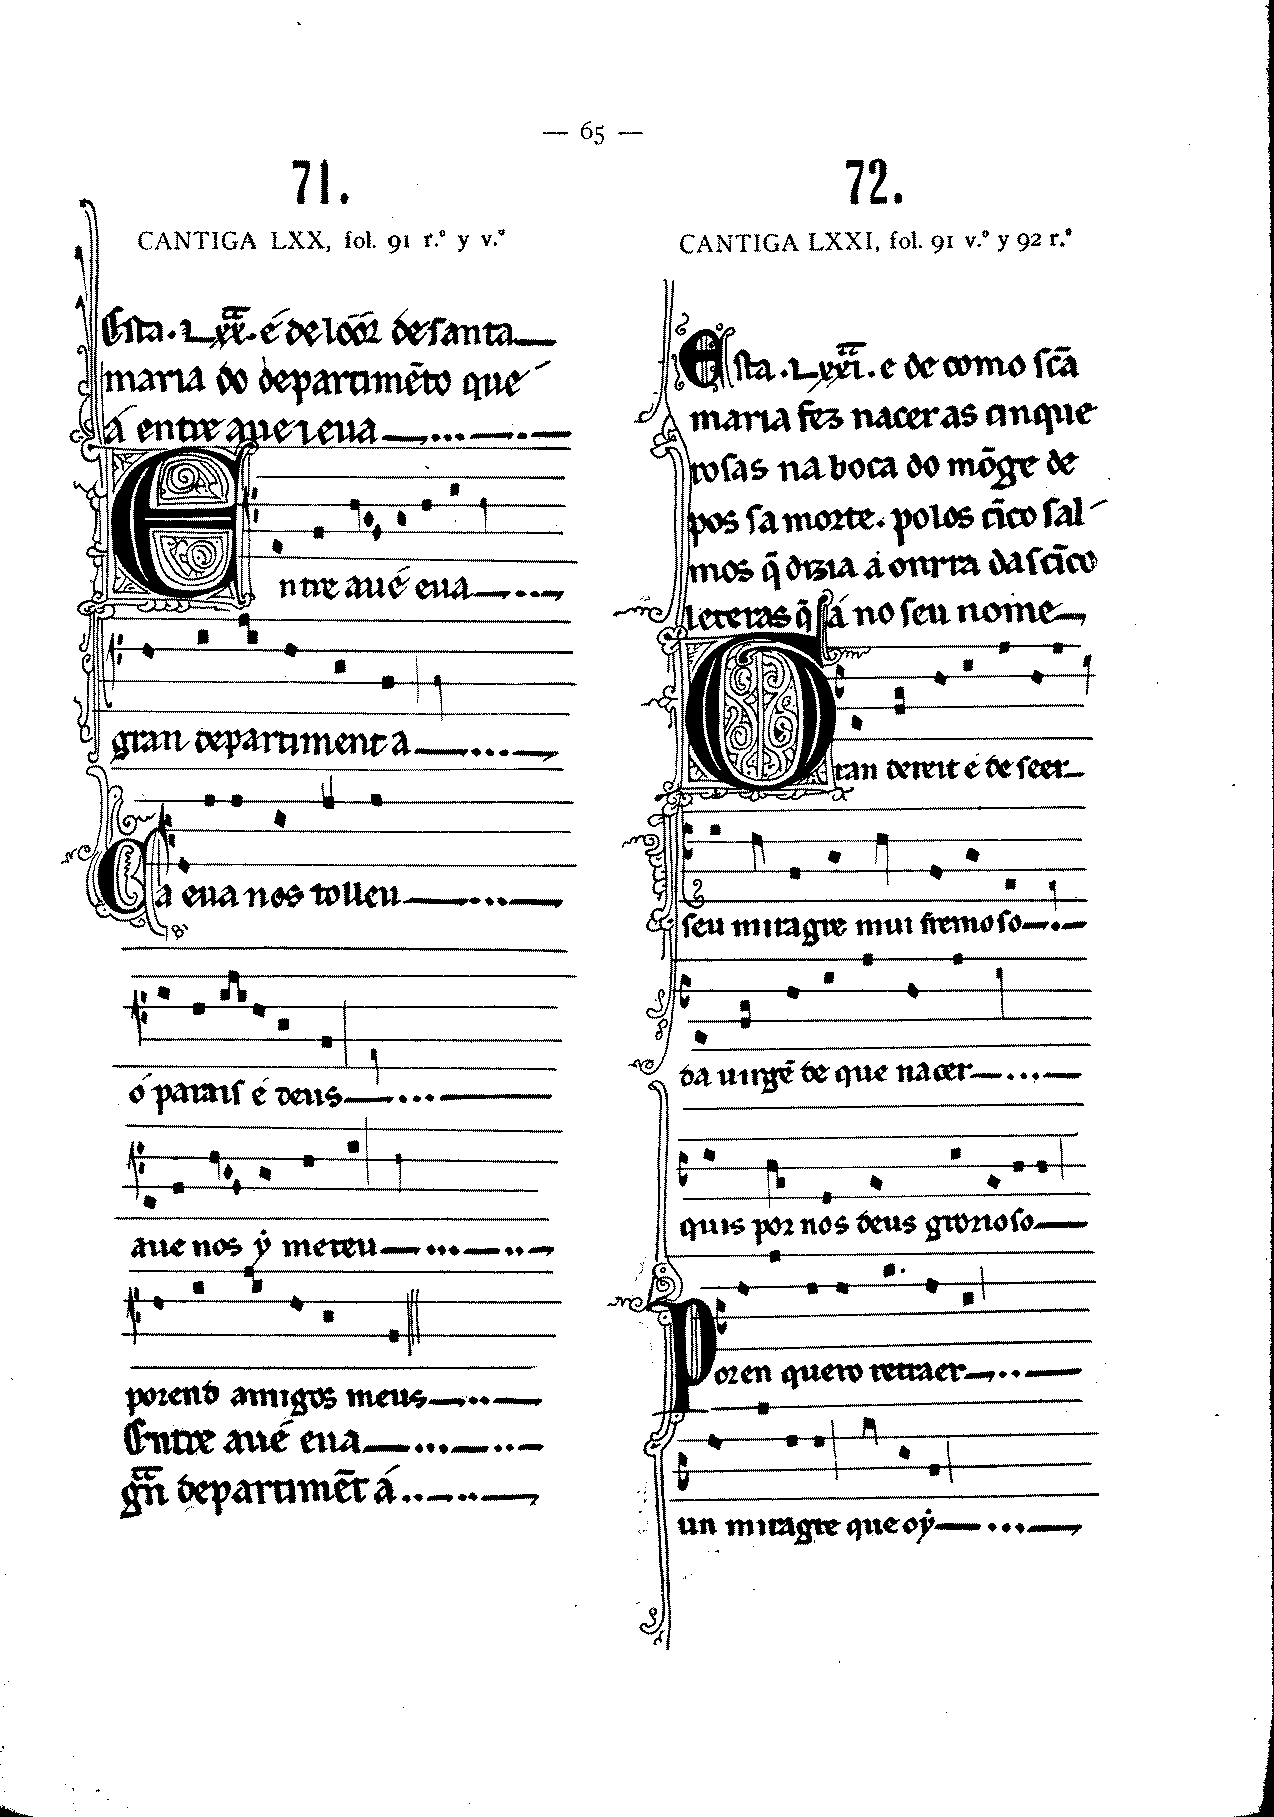 — 65 —
71.
CANTIGA LXX, fol. 91 r.º y v.º
Esta .Lxx. é de loőr de santa
maria do departimẽto que
á entre aue ⁊ eua
Entre aué eua
gran departiment a
Ca eua nos tolleu
ó parais é deus
aue nos ẏ meteu
porend amigos meus
Entre aué eua
grã departimẽt á
72.
CANTIGA LXXI, fol. 91 v.º y 92 r.º
Esta .Lxxi. e de como scã
maria fez nacer as cinque
rosas na boca do mõge de
pos sa morte. polos cĩco sal
mos q̃ dizia á onrra das cĩco
leteras q̃ á no seu nome
Gran dereit é de seer
seu miragre mui fremoso
da uirgẽ de que nacer
quis por nos deus grorioso
Poren quero retraer
un miragre que oẏ